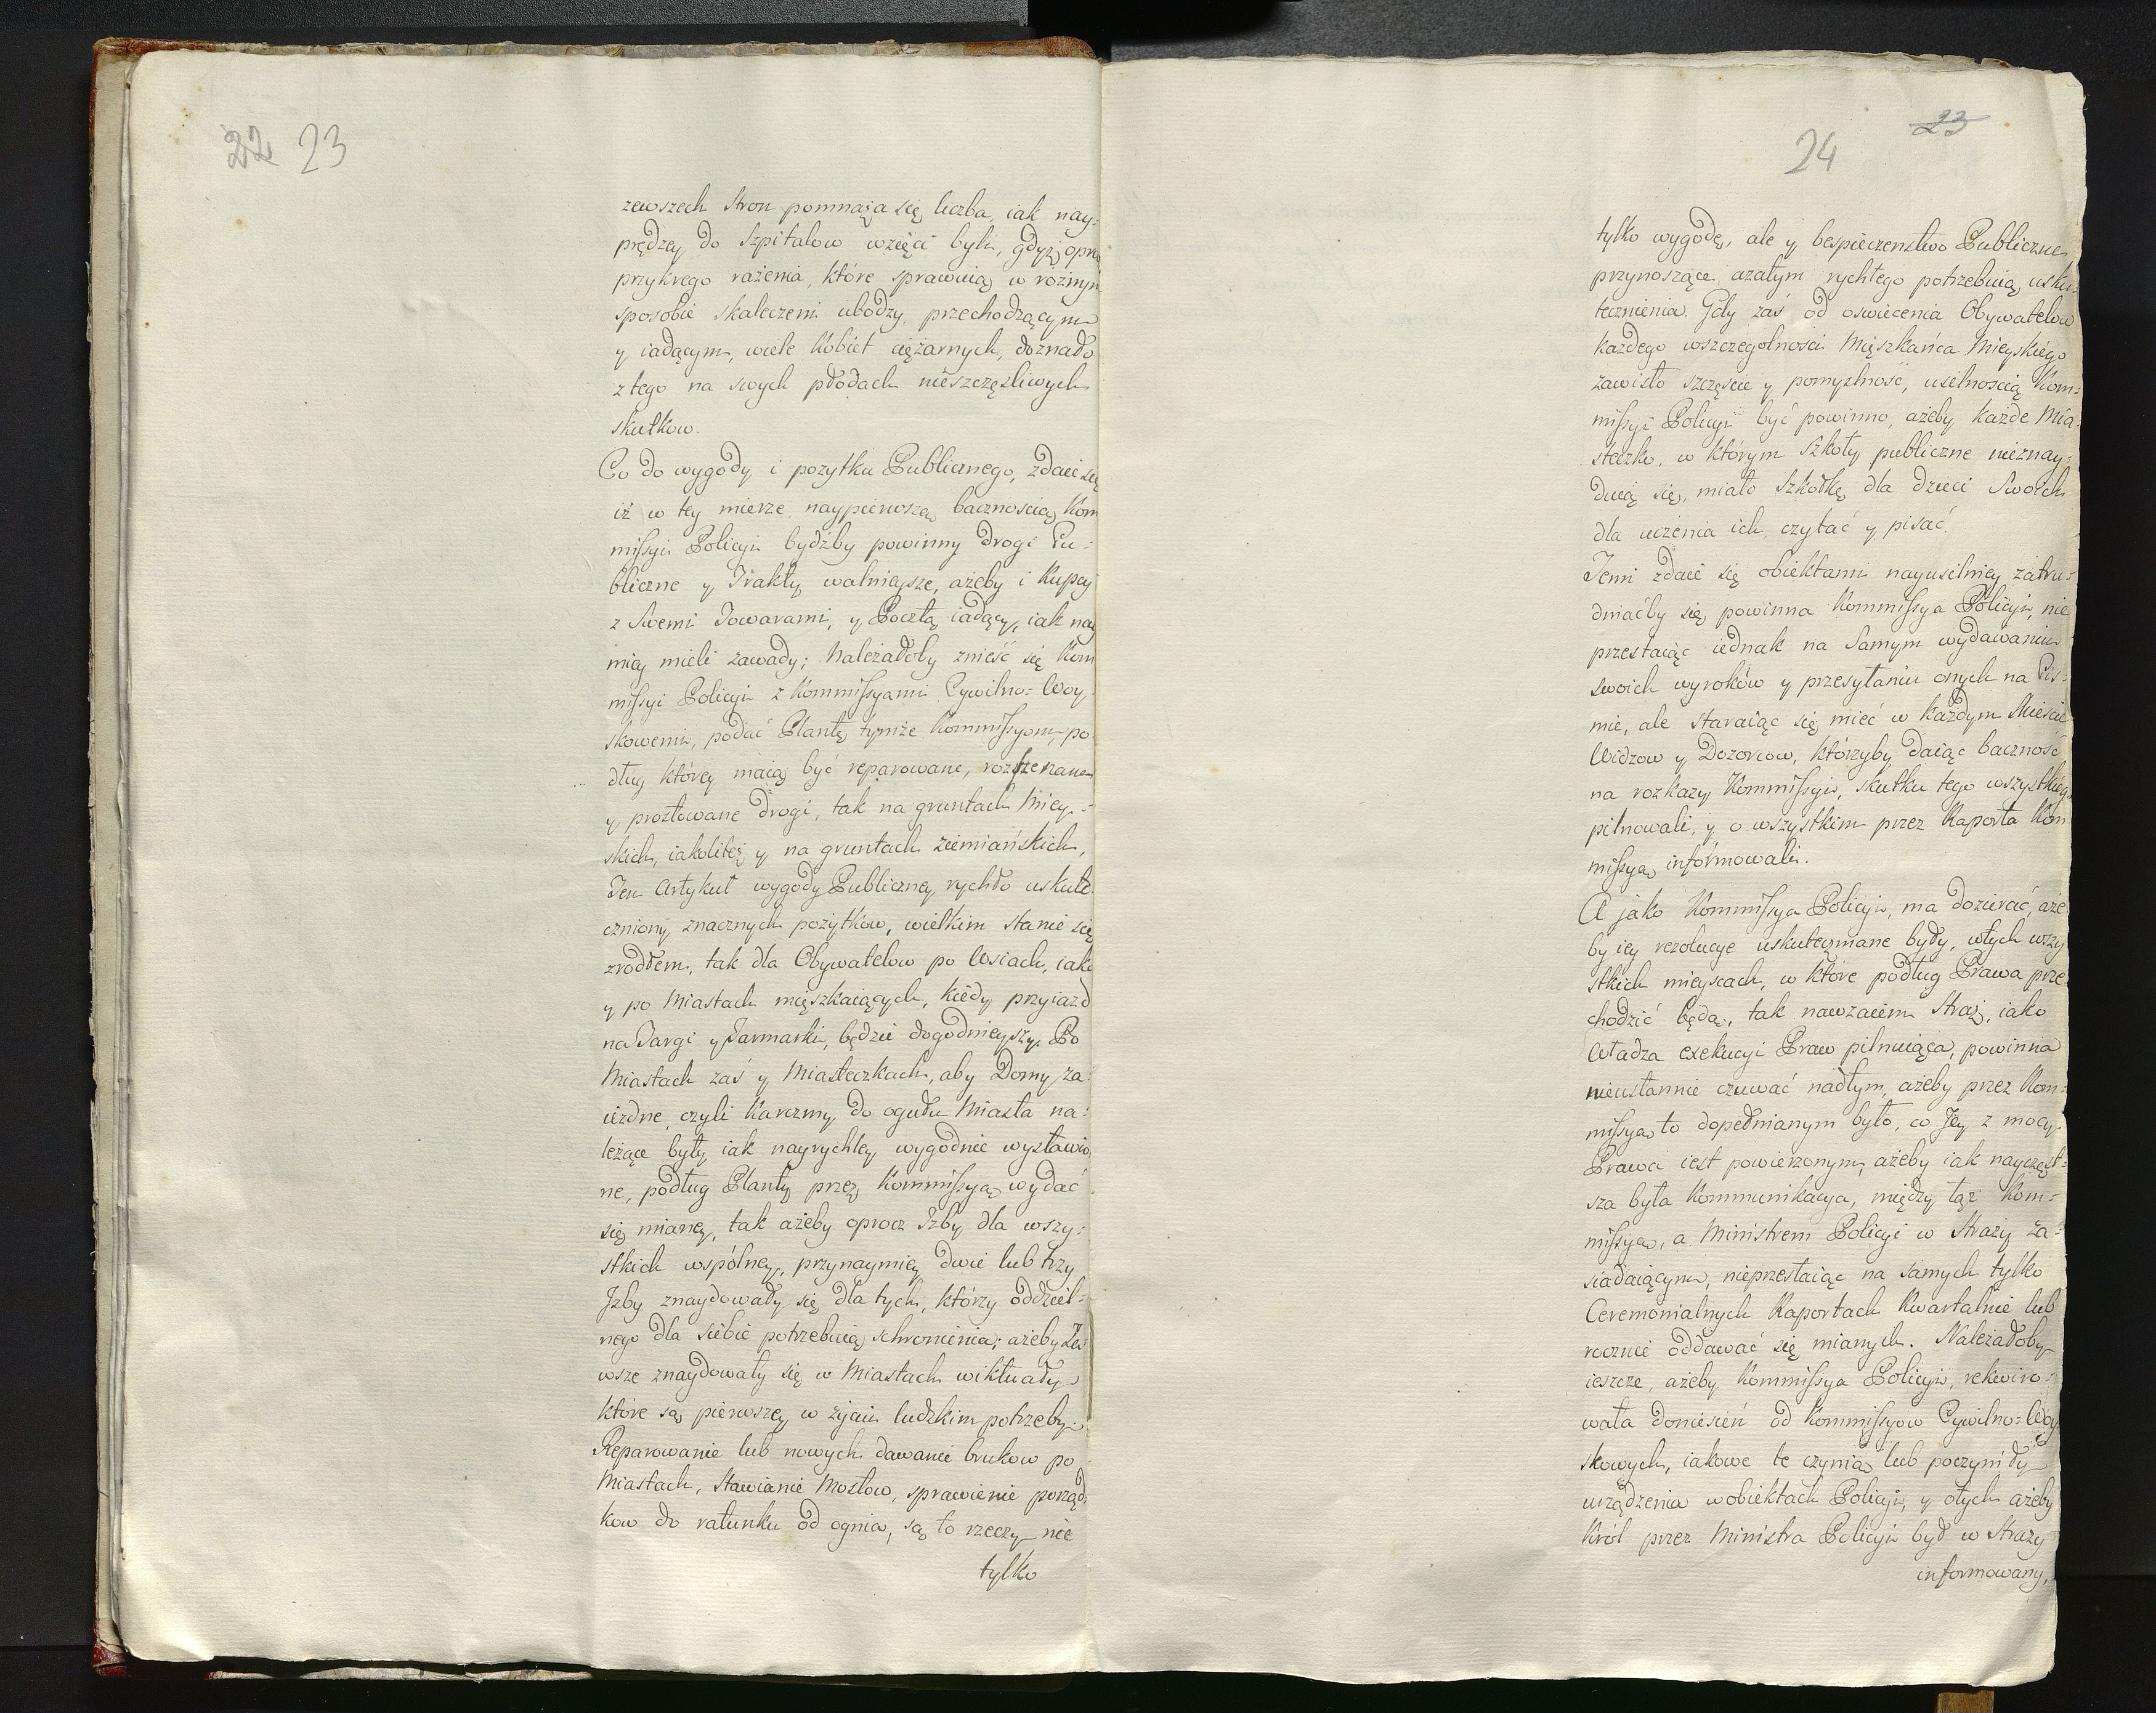 22 23
zewszech Stron pomnaża się liczba, iak nay-
prędzey do Szpitalow wzięci byli, gdyż opro
przykrego rażenia, które sprawuią w rożnym
sposobie skaleczeni ubodzy, przechodzącym
y iadącym, wiele Kobiet ciężarnych, doznało
z tego na swych płodach nieszczęśliwych
skutkow.
Co do wygody i pożytku Publicznego, zdaie się
iż w tey mierze naypierwszą bacznością Kom
missyi Policyi bydźby powinny drogi Pu-
bliczne y Trakty walnieysze, ażeby i Kupcy
z Swemi Towarami, y Pocztą iadący, iak nay
miey mieli zawady; Należałoby znieść się Kom
missyi Policyi z Kommissyami Cywilno-Woy
skowemi, podać Plantę tymże Kommissyom, po
dług którey maią być reparowane, rozszerzane
y prostowane drogi, tak na gruntach Miey-
skich, iakoliteż y na gruntach ziemiańskich,
Ten Artykuł wygody Publiczney rychło uskute
czniony znacznych pożytkow, wielkim stanie się
zrodłem, tak dla Obywatelow po Wsiach, iako
y po Miastach mięszkaiących, kiedy przyiazd
na Targi y Jarmarki, będzie dogodnieyszy. Po
Miastach zaś y Miasteczkach, aby Domy za-
iezdne, czyli Karczmy do ogułu Miasta na-
leżące były iak nayrychley wygodnie wystawio
ne, podług Planty przez Kommissyą wydać
się mianey, tak ażeby oprocz Izby dla wszy-
stkich wspólney, przynaymiey dwie lub trzy
Izby znaydowały się dla tych, którzy oddziel-
nego dla siebie potrzebuią schronienia; ażeby Za-
wsze znaydowały się w Miastach wiktuały
które są pierwszey w życiu ludzkim potrzeby.
Reparowanie lub nowych dawanie brukow po
Miastach, Stawianie Mostow, sprawienie porząd
kow do ratunku od ognia, są to rzeczy nie
tylko
23
24
tylko wygodę, ale y bespieczenstwo Publiczne
przynoszące, azatym rychłego potrzebuią usku-
tecznienia. Gdy zaś od oswiecenia Obywatelow
każdego wszczegolnosci Mięszkańca Mieyskiego
zawisło szczęscie y pomyslność, usilnoscią Kom-
missyi Policyi być powinno, ażeby każde Mia-
steczko, w którym Szkoły publiczne nieznay-
duią się, miało Szkołkę dla dzieci Swoich
dla uczenia ich czytać y pisać.
Temi zdaie się obiektami nayusilniey zatru-
dniaćby się powinna Kommissya Policyi, nie
przestaiąc iednak na Samym wydawaniu
swoich wyroków y przesyłaniu onych na Pis-
mie, ale staraiąc się mieć w każdym Mieście
Widzow y Dozorcow, którzyby daiąc baczność
na rozkazy Kommissyi, skutku tego wszystkieg
pilnowali, y o wszystkim przez Raporta Kom
missyą informowali.
A jako Kommissya Policyi, ma dozierać, aże
by iey rezolucye uskuteczniane były, wtych wszy
stkich mieyscach, w które podług Prawa prze
chodzić będą, tak nawzaiem Straż, iako
Władza exekucyi Praw pilnuiąca, powinna
nieustannie czuwać nadtym, ażeby przez Kom-
missyą to dopełnianym było, co Jey z mocy
Prawa iest powierzonym, ażeby iak nayczęst-
sza była Kommunikacya, między tąż Kom-
missyą, a Ministrem Policyi w Straży za-
siadaiącym, nieprzestaiąc na samych tylko
Ceremonialnych Raportach Kwartalnie lub
rocznie oddawać się mianych. Należałoby
ieszcze, ażeby Kommissya Policyi, rekwiro-
wała doniesień od Kommissyow Cywilno-Woy
skowych, iakowe te czynią lub poczyniły
urządzenia wobiektach Policyi, y otych ażeby
Król przez Ministra Policyi był w Straży
informowany,